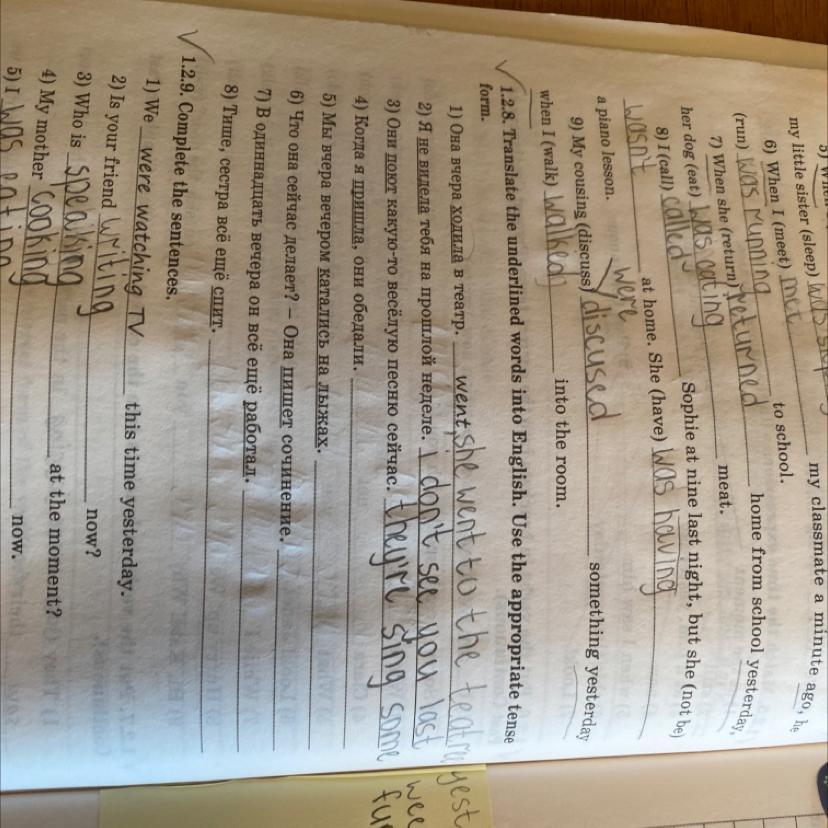 my classmate a minute ago, he
my little sister (sleep)
6) When I (meet) met to school.
(run) was running home from school yesterday,
7) When she (return) returned
her dog (eat) was eating meat.
8) I (call) called Sophie at nine last night, but she (not be)
wasn't at home. She (have) was having
a piano lesson. were
9) My cousins (discuss) discused something yesterday
when I (walk) walked into the room.
1.2.8. Translate the underlined words into English. Use the appropriate tense
form.
1) Она вчера ходила в театр. went, she went to the teatre yest
2) Я не видела тебя на прошлой неделе. I don't see you last wee
3) Они поют какую-то весёлую песню сейчас. they're sing some fu
4) Когда я пришла, они обедали.
5) Мы вчера вечером катались на лыжах.
6) Что она сейчас делает? – Она пишет сочинение.
7) В одиннадцать вечера он всё ещё работал.
8) Тише, сестра всё ещё спит.
1.2.9. Complete the sentences.
1) We were watching TV this time yesterday.
2) Is your friend writing now?
3) Who is speaking at the moment?
4) My mother cooking now.
5) I was eating